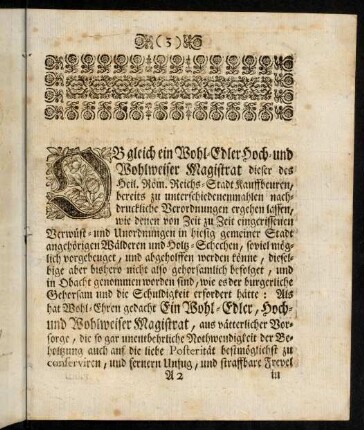 (3)
OB gleich ein Wohl-Edler Hoch- und
Wohlweiser Magistrat dieser des
Heil. Röm. Reichs-Stadt Kauffbeuren,
bereits zu unterschiedenenmahlen nach-
druckliche Verordnungen ergehen lassen,
wie denen von Zeit zu Zeit eingerissenen
Verwüst- und Unordnungen in hiesig gemeiner Stadt
angehörigen Wälderen und Holtz-Schechen, soviel mög-
lich vorgebeuget, und abgeholffen werden könne, diesel-
bige aber bishero nicht also gehorsamlich befolget, und
in Obacht genommen worden sind, wie es der burgerliche
Gehorsam und die Schuldigkeit erfordert hätte: Als
hat Wohl-Ehren gedacht Ein Wohl-Edler, Hoch-
und Wohlweiser Magistrat, aus vätterlicher Vor-
sorge, die so gar unentbehrliche Nothwendigkeit der Be-
holtzung auch auf die liebe Posterität bestmöglichst zu
conserviren, und fernern Unfug, und straffbare Frevel
A 2 in